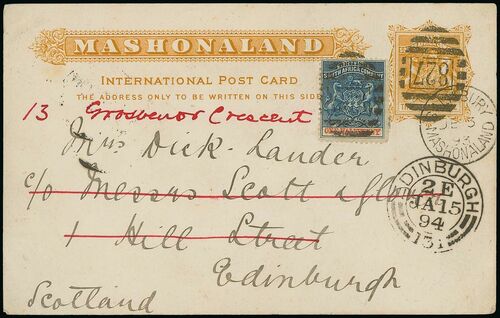 MASHONALAND
INTERNATIONAL POST CARD
THE ADDRESS ONLY TO BE WRITTEN ON THIS SIDE
13 Grosvenor Crescent
BRITISH
SOUTH AFRICA COMPANY
827
Mrs Dick-Lauder
c/o Messrs Scott &
1 Hill Street
Edinburgh
Scotland
MASHONALAND
EDINBURGH
2 E
JA 15
94
131